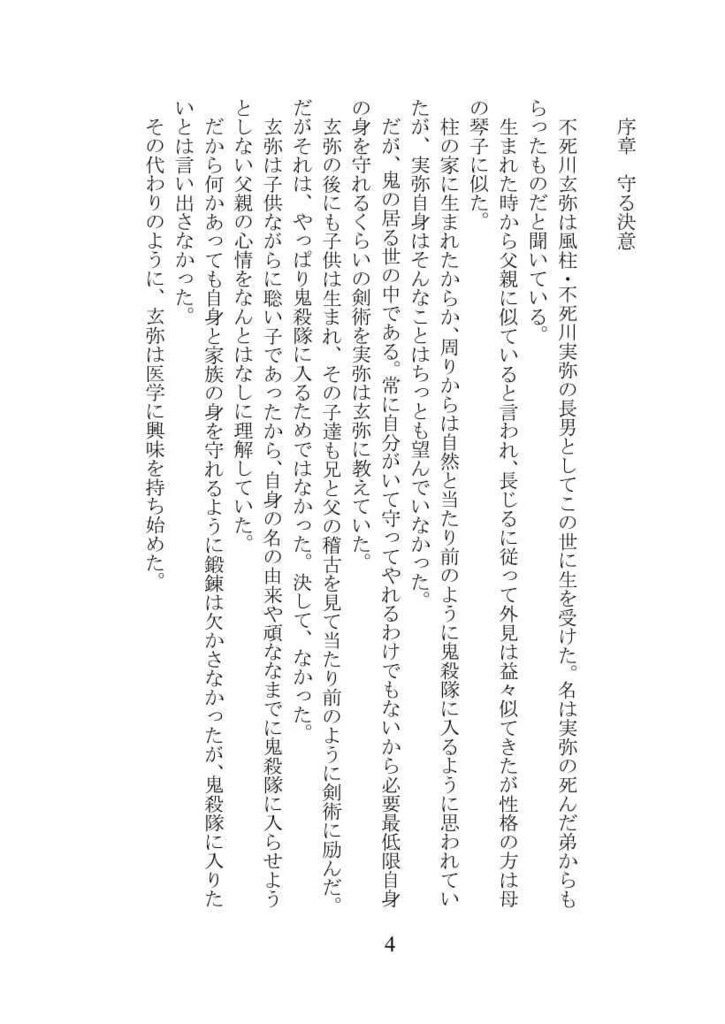 序章　守る決意
不死川玄弥は風柱・不死川実弥の長男としてこの世に生を受けた。名は実弥の死んだ弟からも
らったものだと聞いている。
生まれた時から父親に似ていると言われ、長じるに従って外見は益々似てきたが性格の方は母
の琴子に似た。
柱の家に生まれたからか、周りからは自然と当たり前のように鬼殺隊に入るように思われてい
たが、実弥自身はそんなことはちっとも望んでいなかった。
だが、鬼の居る世の中である。常に自分がいて守ってやれるわけでもないから必要最低限自身
の身を守れるくらいの剣術を実弥は玄弥に教えていた。
玄弥の後にも子供は生まれ、その子達も兄と父の稽古を見て当たり前のように剣術に励んだ。
だがそれは、やっぱり鬼殺隊に入るためではなかった。決して、なかった。
玄弥は子供ながらに聡い子であったから、自身の名の由来や頑ななまでに鬼殺隊に入らせよう
としない父親の心情をなんとはなしに理解していた。
だから何かあっても自身と家族の身を守れるように鍛錬は欠かさなかったが、鬼殺隊に入りた
いとは言い出さなかった。
その代わりのように、玄弥は医学に興味を持ち始めた。
4